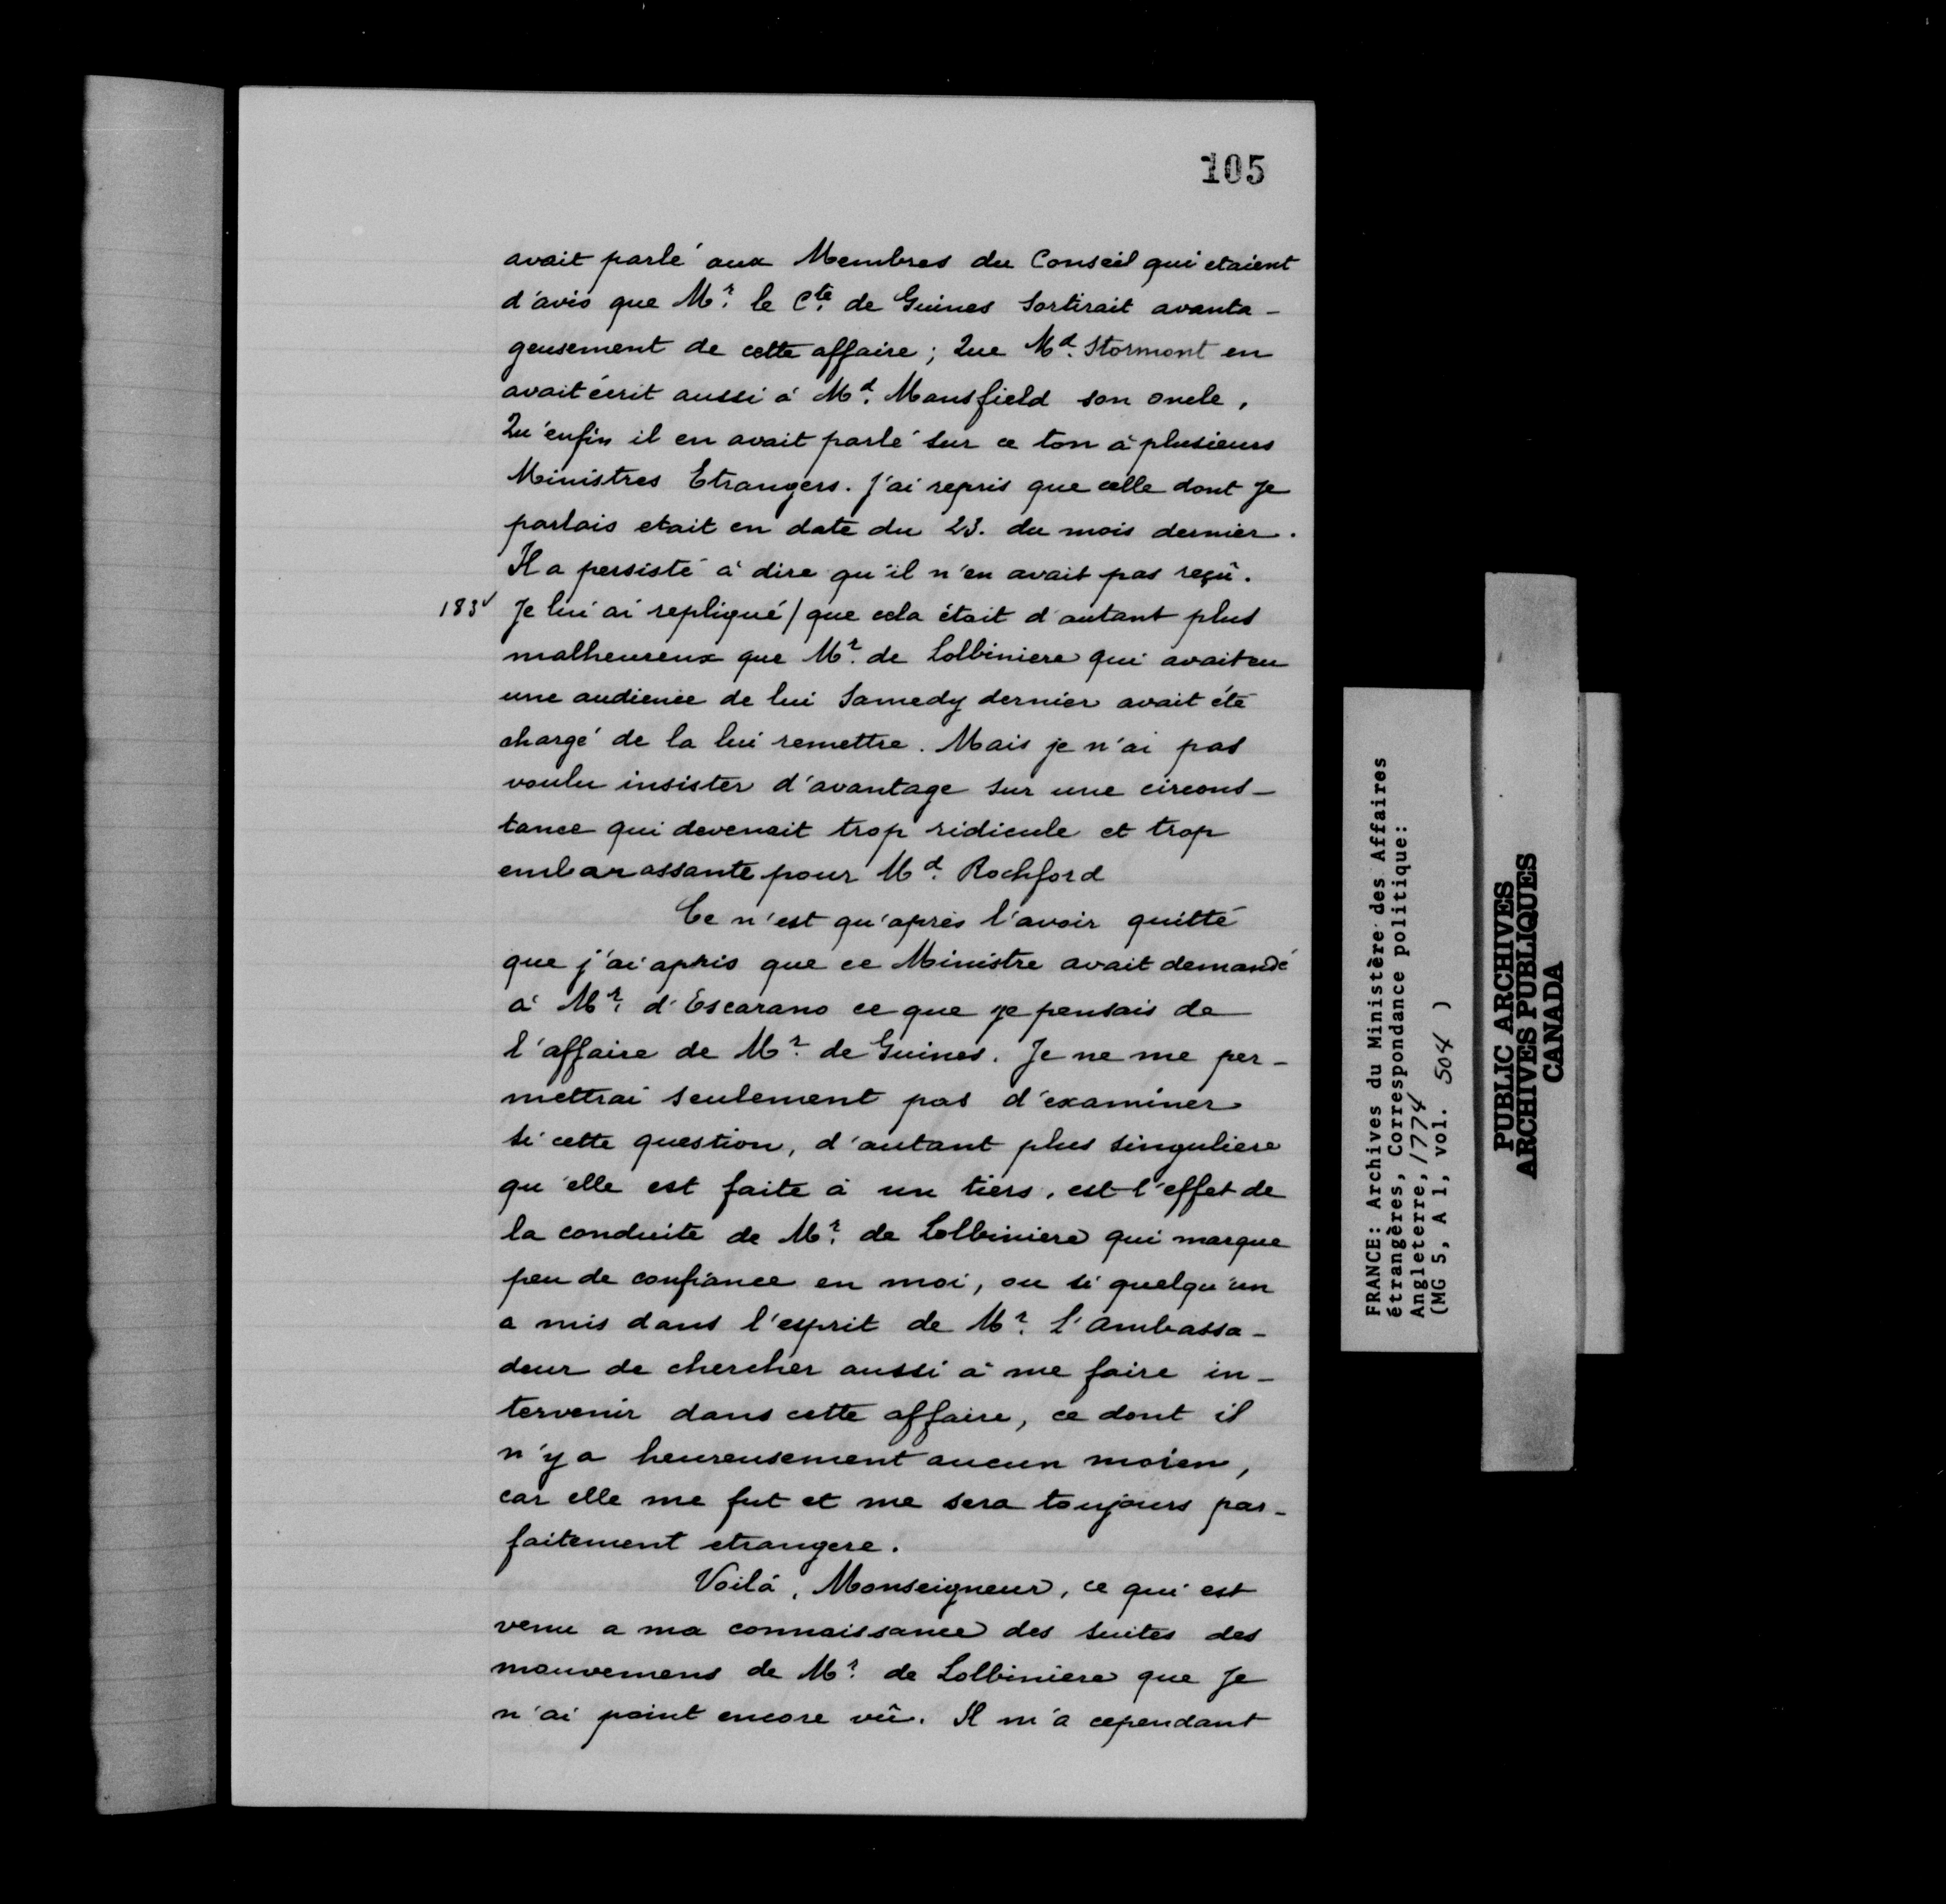 105
avait parlé aux Membres du Conseil qui etaient
d'avis que Mr. le Cte. de Guines Sortirait avanta-
geusement de cette affaire; Que Md. Stormont en
avait écrit aussi à Md. Mansfield son oncle,
Qu'enfin il en avait parlé sur ce ton à plusieurs
Ministres Etrangers. J'ai repris que celle dont Je
parlais etait en date du 23. du mois dernier.
Il a persisté à dire qu'il n'en avait pas reçû.
183v Je lui ai repliqué/que cela était d'autant plus
malheureux que Mr. de Lolbiniere qui avait eu
une audience de lui Samedy dernier avait été
chargé de la lui remettre. Mais je n'ai pas
voulu insister d'avantage sur une circons-
tance qui devenait trop ridicule et trop
embarassante pour Md. Rochford
Ce n'est qu'après l'avoir quitté
que j'ai apris que ce Ministre avait demandé
à Mr. d'Escarano ce que je pensais de
l'affaire de Mr. de Guines. Je ne me per-
mettrai seulement pas d'examiner
si cette question, d'autant plus singuliere
qu'elle est faite à un tiers, est l'effet de
la conduite de Mr. de Lolbiniere qui marque
peu de confiance en moi, ou si quelqu'un
a mis dans l'esprit de Mr. l'Ambassa-
deur de chercher aussi à me faire in-
tervenir dans cette affaire, ce dont il
n'y a heureusement aucun moien,
car elle me fut et me sera toujours par-
faitement etrangere.
Voilà, Monseigneur, ce qui est
venu a ma connaissance des suites des
mouvemens de Mr. de Lolbiniere que Je
n'ai point encore vû. Il m'a cependant
FRANCE: Archives du Ministère des Affaires
étrangères, Correspondance politique:
Angleterre, 1774
(MG 5, A 1, vol. 504 )
PUBLIC ARCHIVES
ARCHIVES PUBLIQUES
CANADA